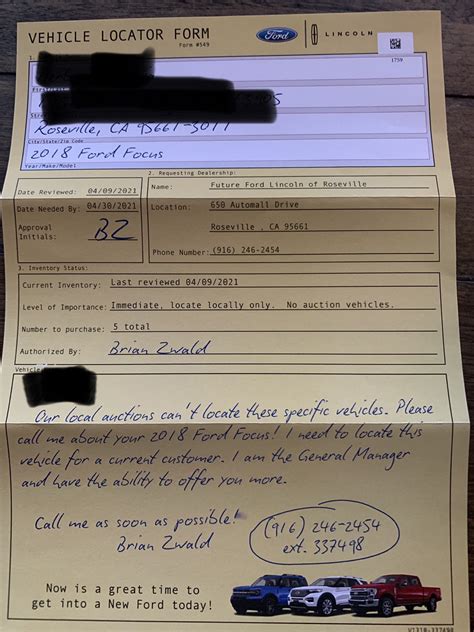 VEHICLE LOCATOR FORM
Form #549
Ford
LINCOLN
1759
1.
Roseville, CA 95661-5011
City/State/Zip Code
2018 Ford Focus
Year/Make/Model
2. Requesting Dealership:
Date Reviewed: 04/09/2021
Name: Future Ford Lincoln of Roseville
Date Needed By: 04/30/2021
Location: 650 Automall Drive
Approval Initials: BZ
Roseville , CA 95661
Phone Number: (916) 246-2454
3. Inventory Status:
Current Inventory: Last reviewed 04/09/2021
Level of Importance: Immediate, locate locally only. No auction vehicles.
Number to purchase: 5 total
Authorized By: Brian Zwald
Vehicle
Our local auctions can't locate these specific vehicles. Please
call me about your 2018 Ford Focus! I need to locate this
vehicle for a current customer. I am the General Manager
and have the ability to offer you more.
Call me as soon as possible!
Brian Zwald
(916) 246-2454
ext. 337498
Now is a great time to
get into a New Ford today!